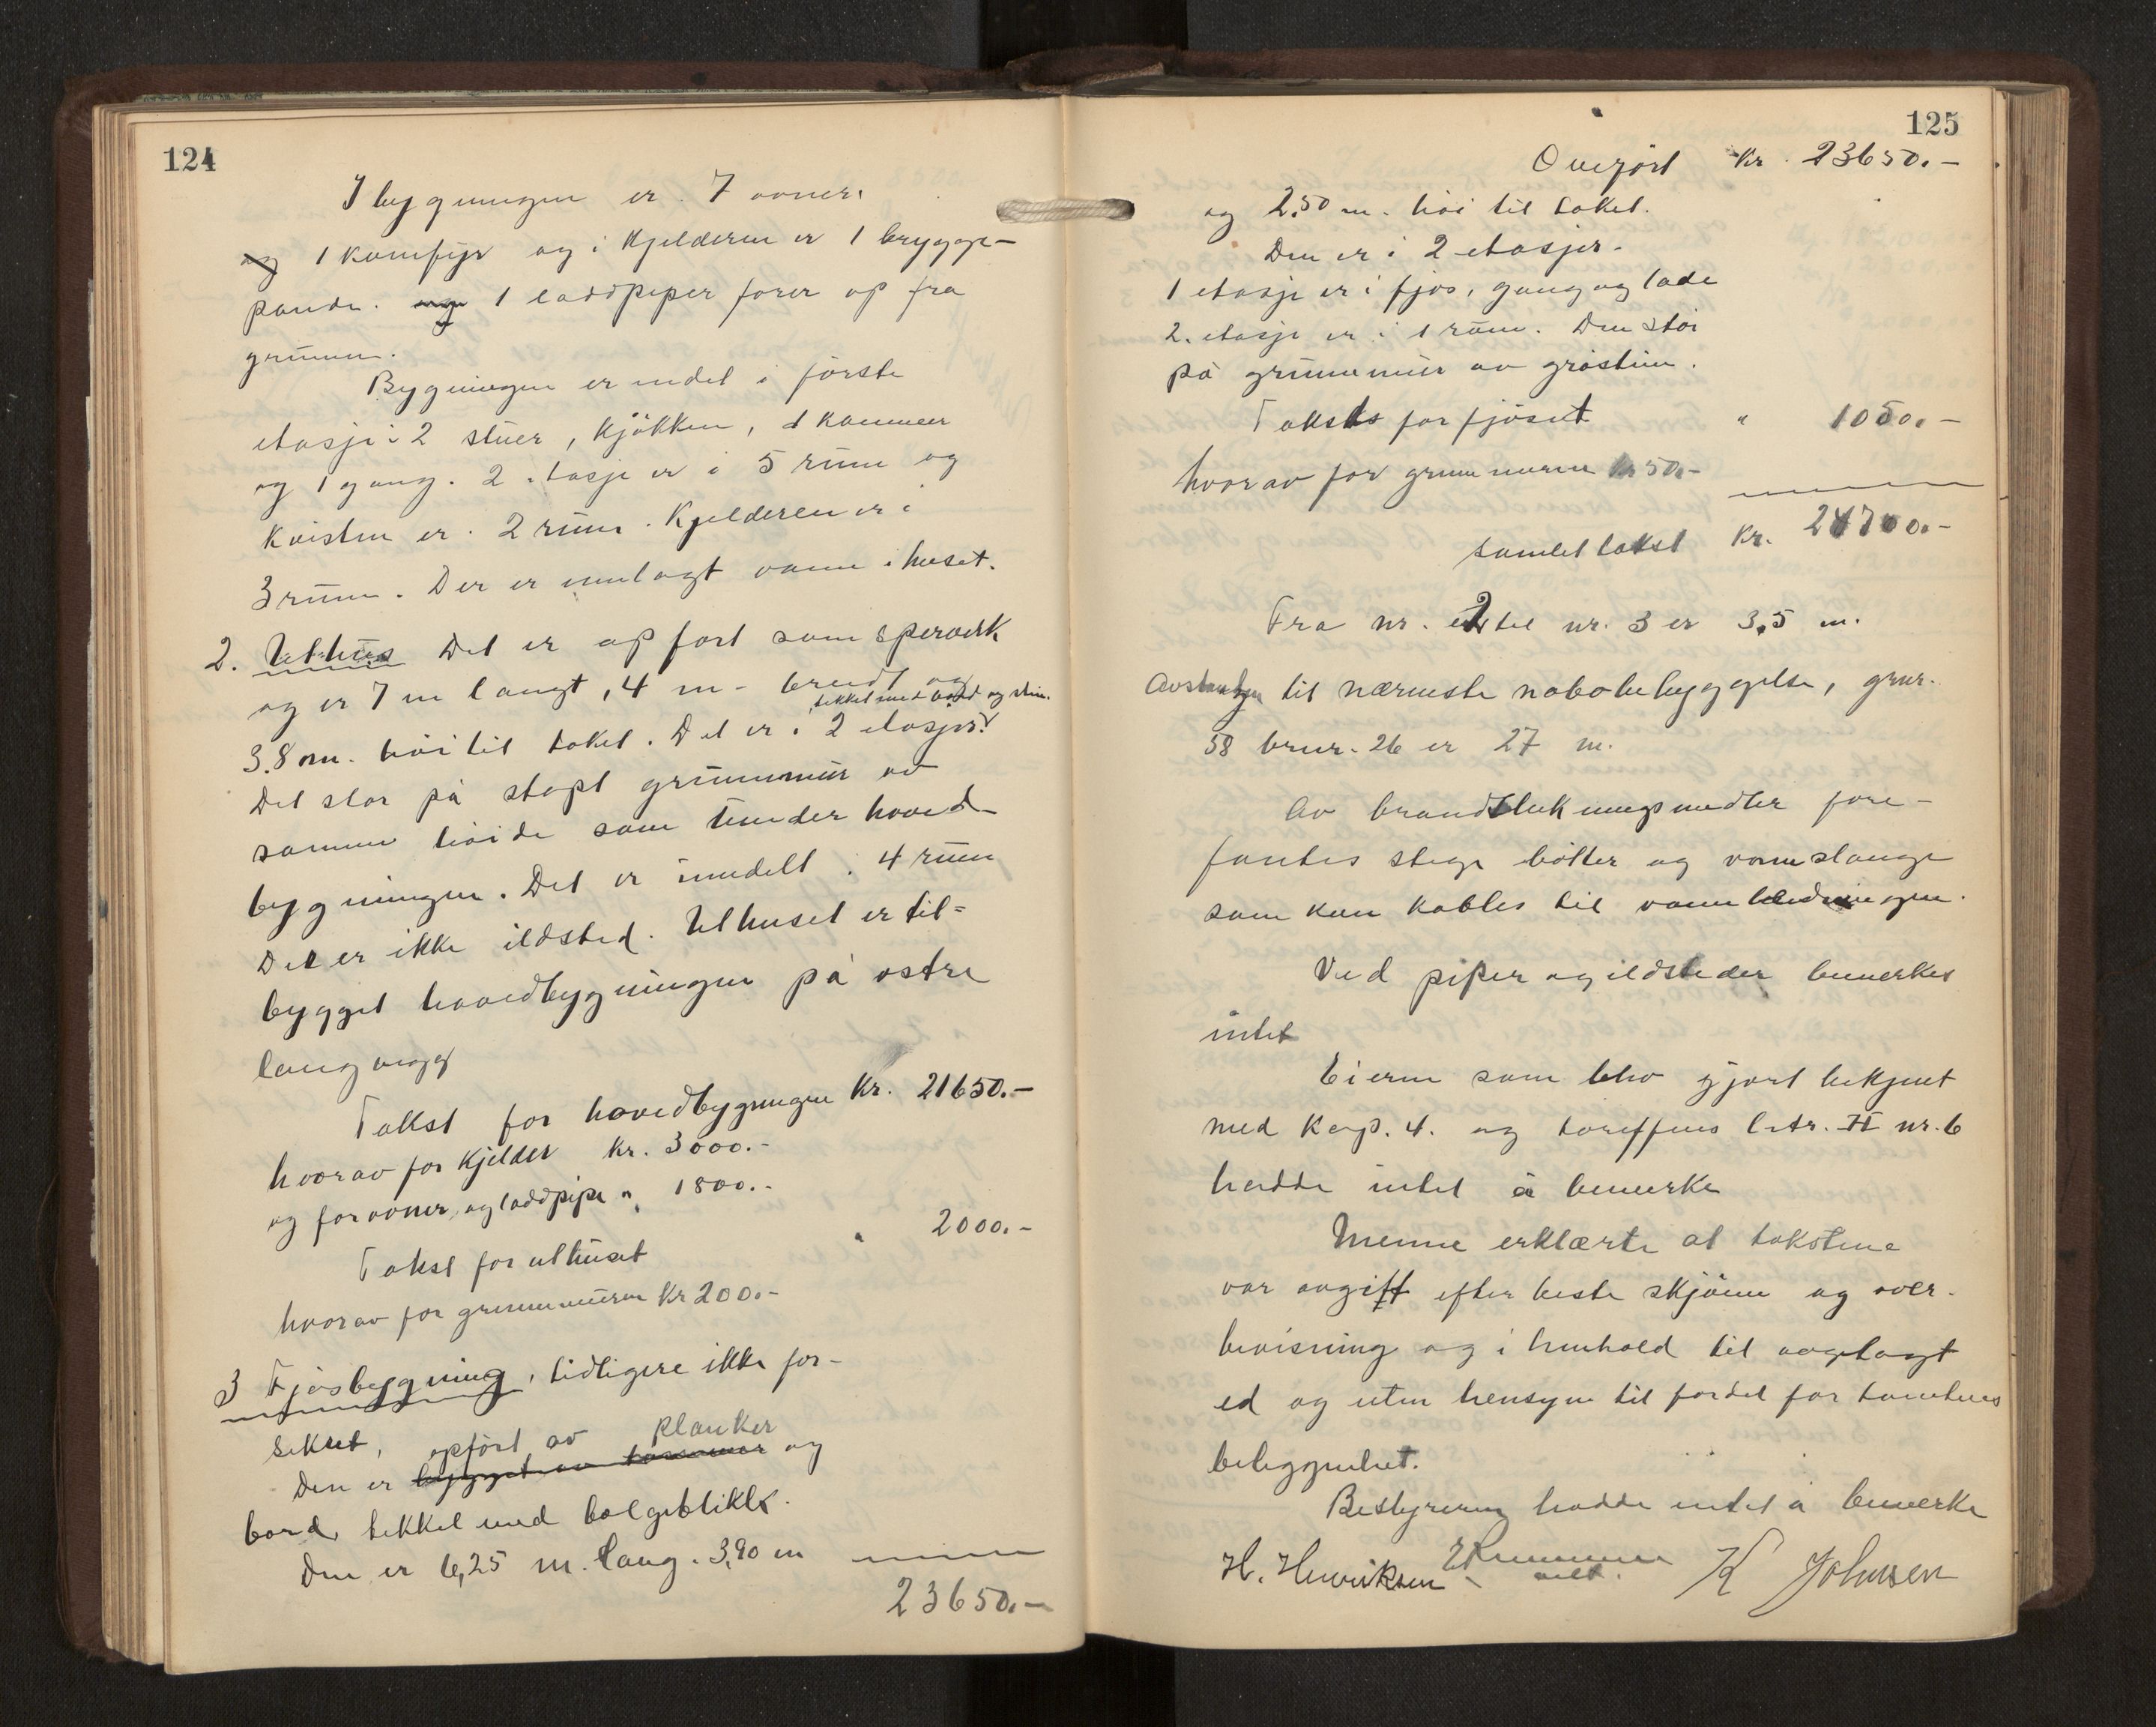 124
I bygningen er 7 ovner,
og 1 komfyr og i kjelderen er 1 brygge-
pande. og 1 loddpiper fører op fra
grunnen.
Bygningen er indel i förste
etasje i 2 stuer, kjøkken, 1 kammer
og 1 gang. 2 etasje er i 5 rum og
kvisten er. 2 rum. Kjelderen er i
3 rum. Der er innlagt vann i huset.
2. Uthus Det er opfort som sperverk
og er 7 m langt, 4 m - bredt og
tekket med bord og sten.
3.80 m. høi til taket. Det er i 2 etasjer.
Det står på støpt grunnmur av
samme höide som under hoved-
bygningen. Det er inndelt i 4 rum
Det er ikke ildsted. Uthuset er til-
bygget hovedbygningen på østre
langvegg
Takst for hovedbygningen Kr. 21650.-
hvorav for kjelder kr. 3000.-
og for ovner og loddpipe " 1800.-
Takst for uthuset " 2000.-
hvorav for grunnmuren Kr 200.-
3 Fjøsbygning, tidligere ikke for-
sikret,
opført av planker
Den er bygget av tømmer og
bord, tekket med bølgeblikk.
Den er 6,25 m. lang. 3,90 m
23650.-
125
Overført kr. 23650.-
og 2.50 m. høi til taket.
Den er i 2 etasjer.
1 etasje er i fjøs, gang og lade
2. etasje er i 1 rum. Den står
på grunnmur av gråstein.
Takst for fjøset " 1050.-
hvorav for grunnmuren kr 50.-
samlet takst Kr. 24700.-
Fra nr. 2 til nr. 3 er 3,5 m.
Avstanden til nærmeste nabobebyggelse, gnr.
58 brnr. 26 er 27 m.
Av brandslukningsmidler fore-
fantes stige bøtter og vannslange
som kan kobles til vannledningen.
Ved piper og ildsteder bemerkes
intet
Eieren som blev gjort bekjent
med Kap. 4. og tariffens litr. H nr. 6
hadde intet å bemerke
Menne erklærte at takstene
var avgitt efter beste skjønn og over-
bevisning og i henhold til avlagt
ed og uten hensyn til fordel for tomtens
beliggenhet.
Bestyreren hadde intet å bemerke
H. Henriksen K Johnsen